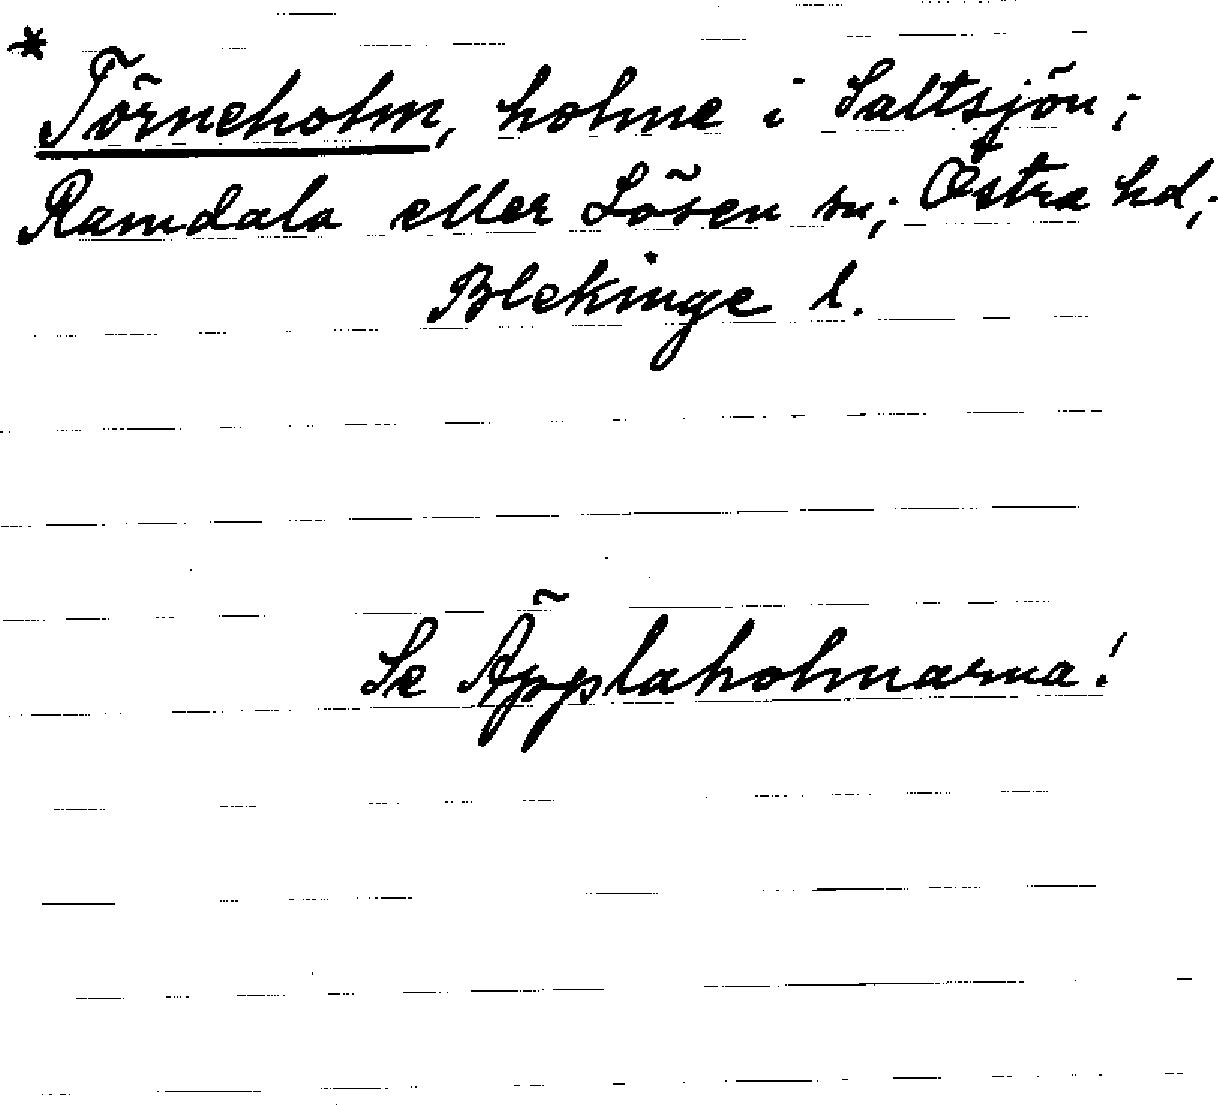 * Törneholm, holme i Saltsjön;
Ramdala eller Lösen sn; Östra hd;
Blekinge l.
Se Äpplaholmarna!